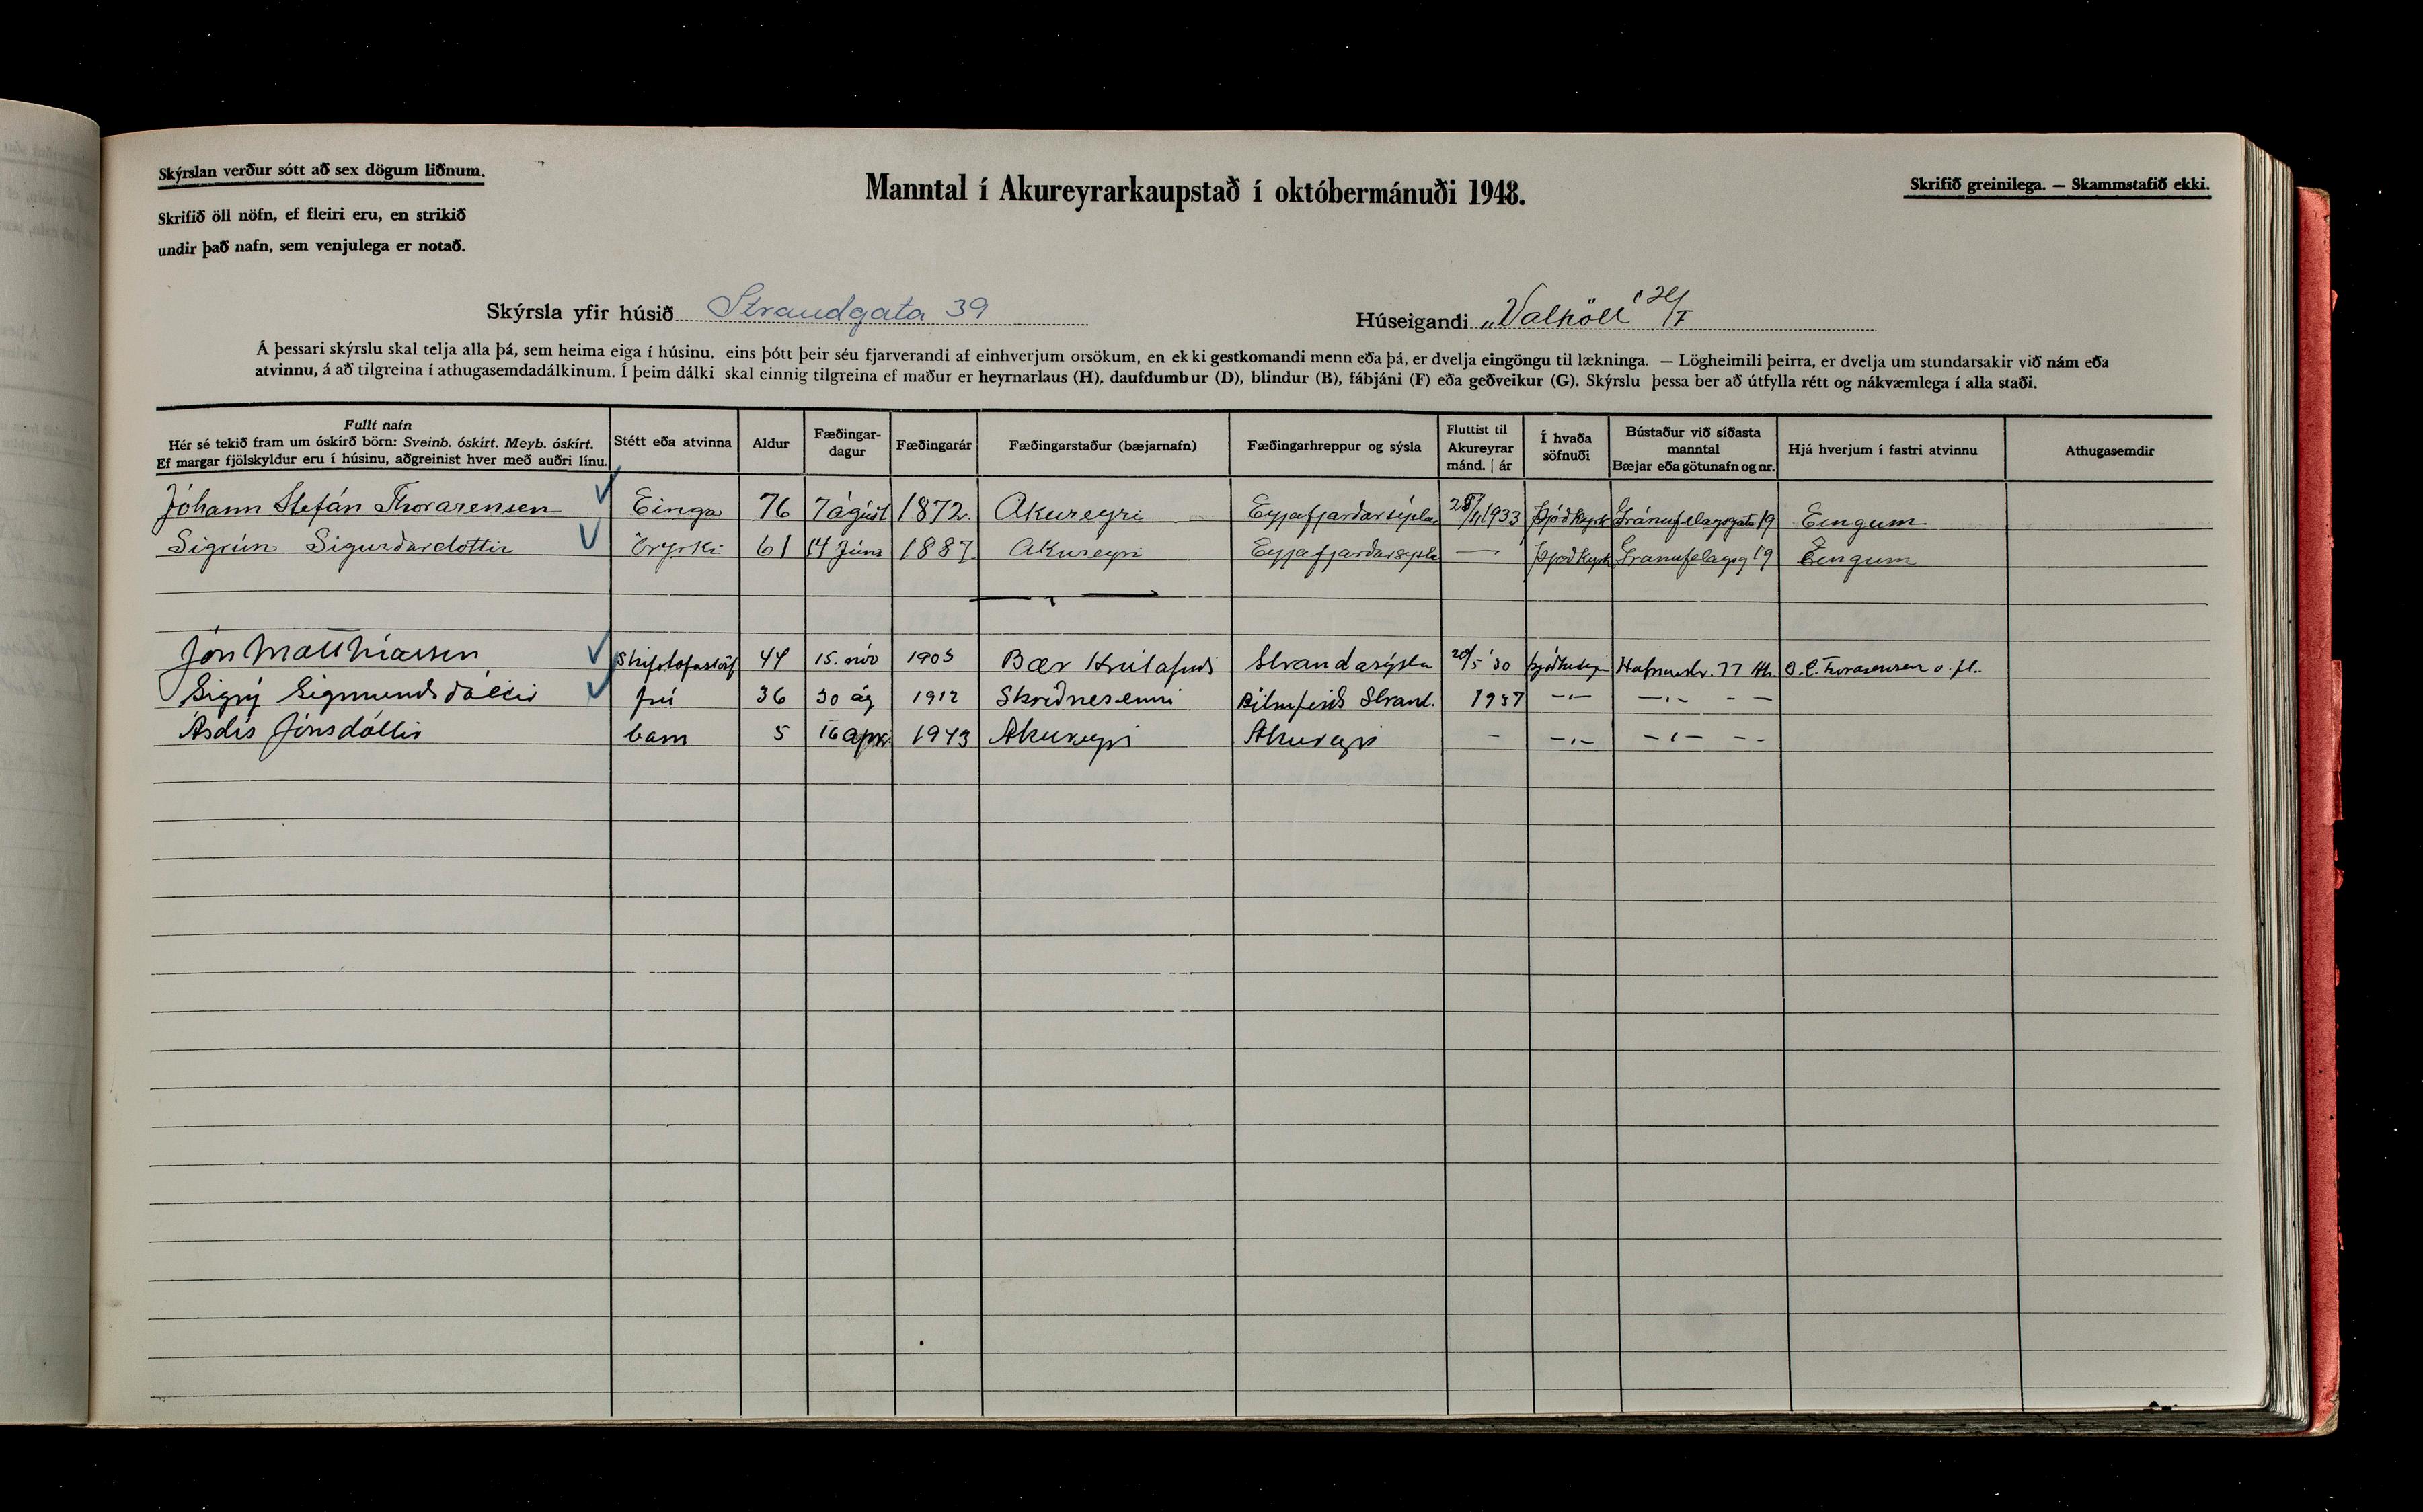 Skýrslan verður sótt að sex dögum liðnum.
Skrifið öll nöfn, ef fleiri eru, en strikið
undir það nafn, sem venjulega er notað.
Manntal í Akureyrarkaupstað í októbermánuði 1948.
Skrifið greinilega. — Skammstafið ekki.
Skýrsla yfir húsið Strandgata 39
Húseigandi „Valhöll"
Á þessari skýrslu skal telja alla þá, sem heima eiga í húsinu, eins þótt þeir séu fjarverandi af einhverjum orsökum, en ekki gestkomandi menn eða þá, er dvelja eingöngu til lækninga. — Lögheimili þeirra, er dvelja um stundarsakir við nám eða
atvinnu, á að tilgreina í athugasemdadálkinum. Í þeim dálki skal einnig tilgreina ef maður er heyrnarlaus (H), daufdumbur (D), blindur (B), fábjáni (F) eða geðveikur (G). Skýrslu þessa ber að útfylla rétt og nákvæmlega í alla staði.
Fullt nafn
Hér sé tekið fram um óskírð börn: Sveinb. óskírt. Meyb. óskírt.
Ef margar fjölskyldur eru í húsinu, aðgreinist hver með auðri línu.
Stétt eða atvinna
Aldur
Fæðingar-
dagur
Fæðingarár
Fæðingarstaður (bæjarnafn)
Fæðingarhreppur og sýsla
Fluttist til
Akureyrar
mánd. | ár
Í hvaða
söfnuði
Bústaður við síðasta
manntal
Bæjar eða götunafn og nr.
Hjá hverjum í fastri atvinnu
Athugasemdir
Jóhann Stefán Thorarensen Einga 76 7 ágúst 1872. Akureyri Eyjafjarðarsýsla 1933 Þjóðkyrk Gránufelagsgata 19 Eingum
Sigrún Sigurðardottir Öryrki 61 14 Júní 1887 Akureyri Eyjafjarðarsysla — Þjóðkyrk Granufelagsg 19 Eingum
Jón Matthíassen 44 15. nóv 1903 Bær Hrútafirði Strandasýsla 20/5 '30 Hafnarstr. 77 Ak. O. C. Thorarensen o. fl.
Signý Sigmundsdóttir frú 36 30 ág 1912 Skriðnesenni Strand. 1937 -"- -"- - -
Ásdís Jónsdóttir barn 5 16 apr. 1943 Akureyri Akureyri - -"- -"- - -